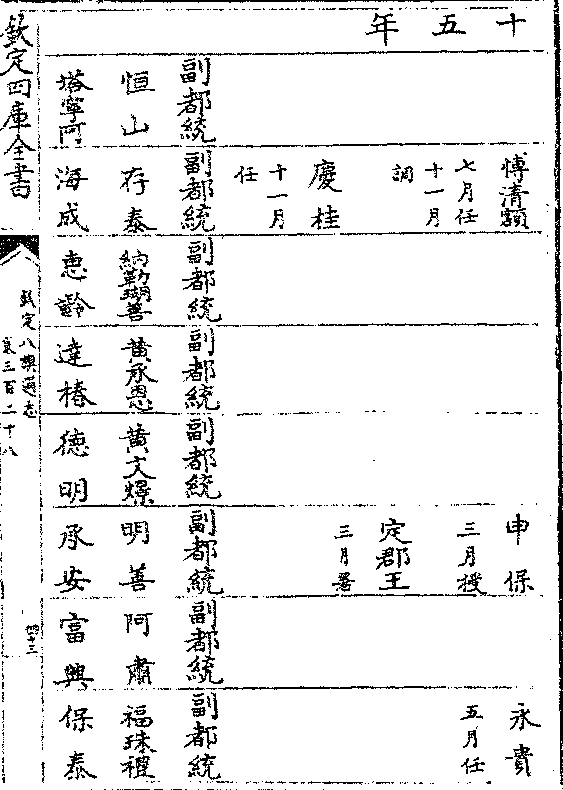 十五年
副都統
恒山
塔寧阿
博清額
七月任
十一月
調
慶桂
十一月
任
副都統
存泰
海成
副都統
納勒瑚善
惠齡
副都統
黃承恩
達椿
副都統
黃文
德明
申保
三月授
定郡王
三月署
副都統
明善
承安
副都統
阿肅
富興
永貴
五月任
副都統
福珠禮
保泰
欽定四庫全書
欽定八旗通志
卷三百二十八
四十三